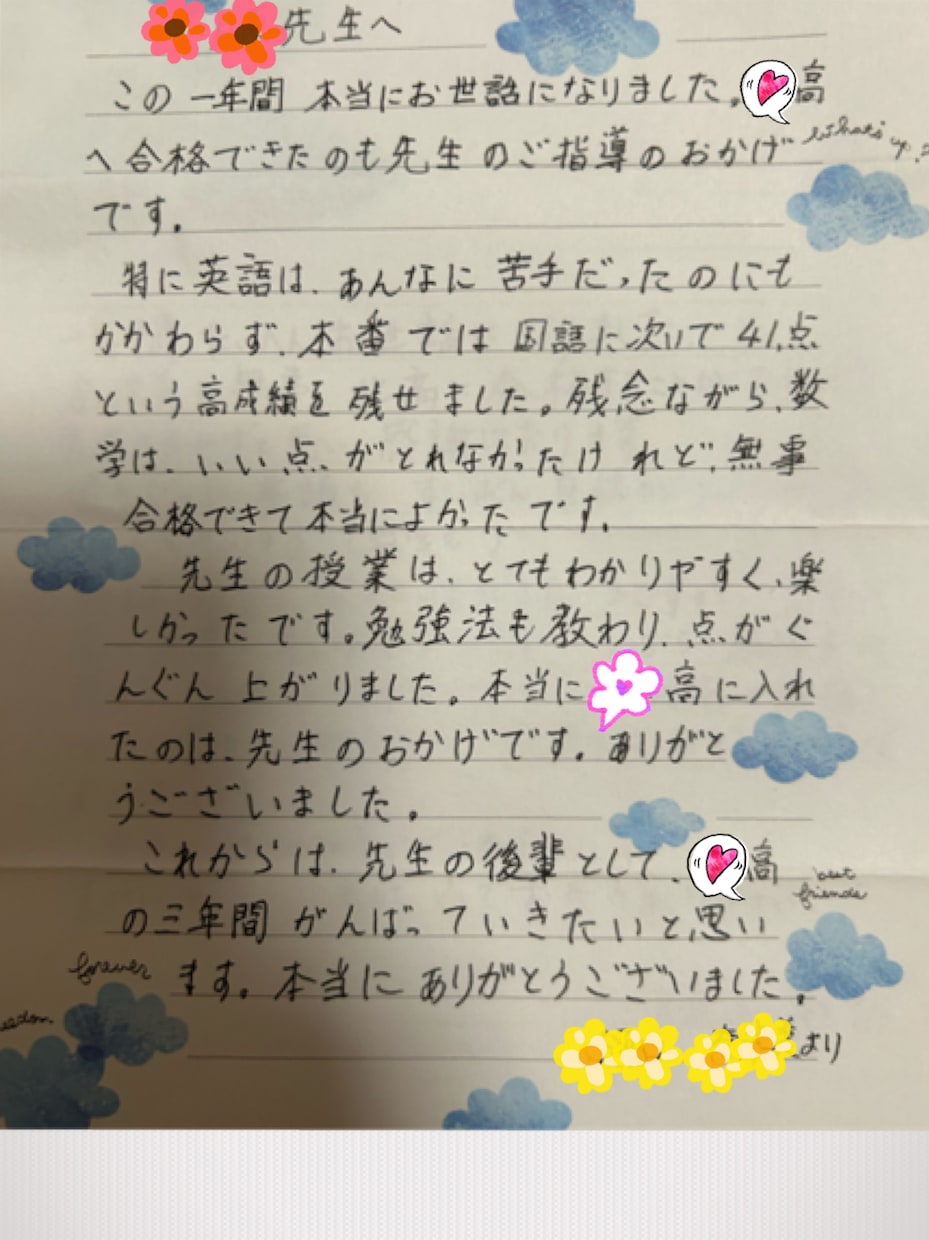 先生へ
この一年間 本当にお世話になりました。高
へ合格できたのも先生のご指導のおかげ
what's up?
です。
特に英語は、あんなに苦手だったのにも
かかわらず、本番では国語に次いで41点
という高成績を残せました。残念ながら、数
学は、いい点がとれなかったけれど、無事
合格できて本当によかったです。
先生の授業は、とてもわかりやすく、楽
しかったです。勉強法も教わり、点がぐ
んぐん上がりました。本当に高に入れ
たのは、先生のおかげです。ありがと
うございました。
これからは、先生の後輩として、高
best friends
の三年間がんばっていきたいと思い
forever
ます。本当にありがとうございました。
より